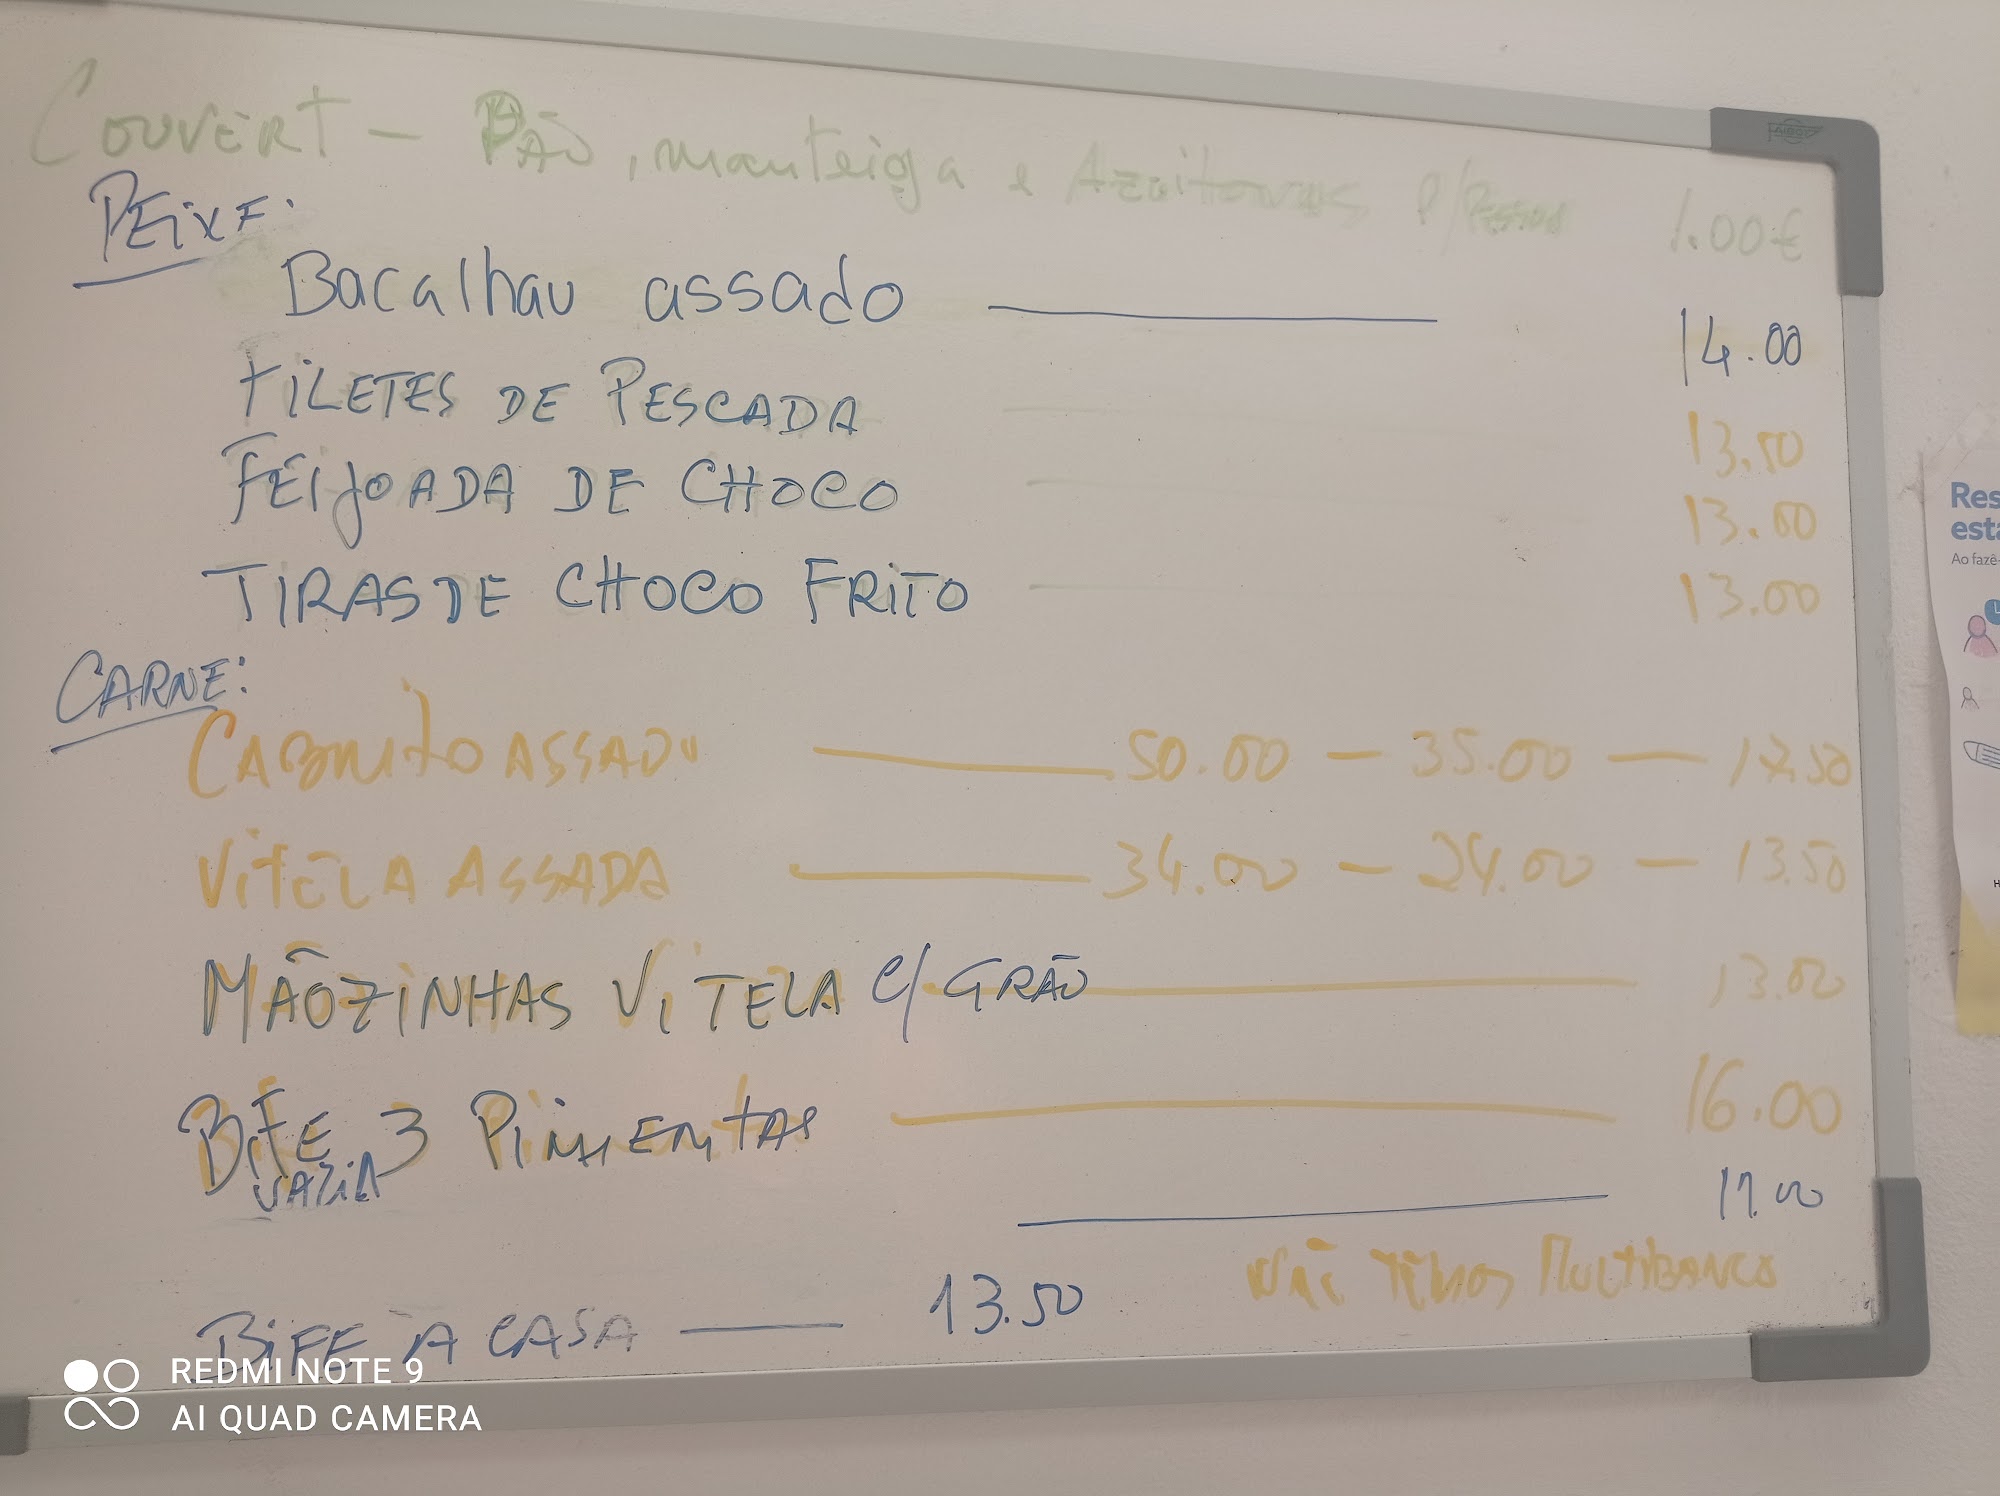 COUVERT - PÃO, manteiga e Azeitonas P/Pessoa 1.00€
PEiXE:
Bacalhau assado 14.00
FiLETES DE PESCADA 13.50
FEIJOADA DE CHOCO 13.00
TIRAS DE CHOCO FRiTO 13.00
CARNE:
CABRiTO ASSADO 50.00 - 35.00 - 17.50
ViTELA ASSADA 34.00 - 24.00 - 13.50
MÃOZiNHAS ViTELA C/ GRÃO 13.00
BiFE 3 PiMENTAS 16.00
VAZiA 17.00
NÃO TEMOS MULTIBANCO
BiFE À CASA - 13.50
Res
esta
Ao fazê-
REDMI NOTE 9
AI QUAD CAMERA